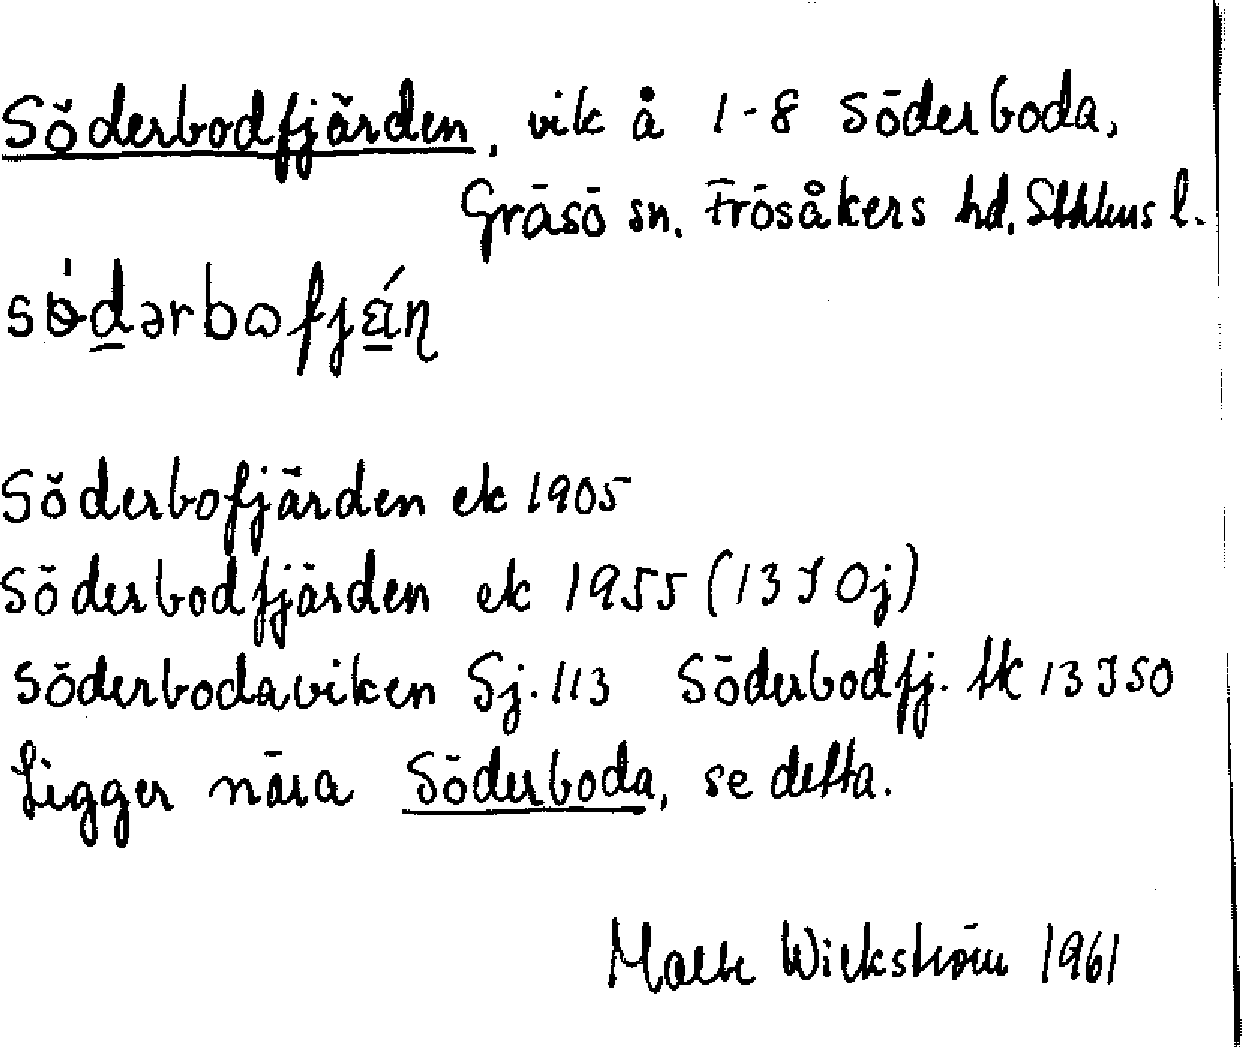 Söderbodfjärden, vik å 1-8 Söderboda,
Gräsö sn. Frösåkers hd. Sthlms l.
Söderbofjärden ek 1905
Söderbodfjärden ek 1955 (13 I 0j)
Söderbodaviken Sj. 113 Söderbodfj. tk 13 I SO
Ligger nära Söderboda, se detta.
Malte Wickström 1961